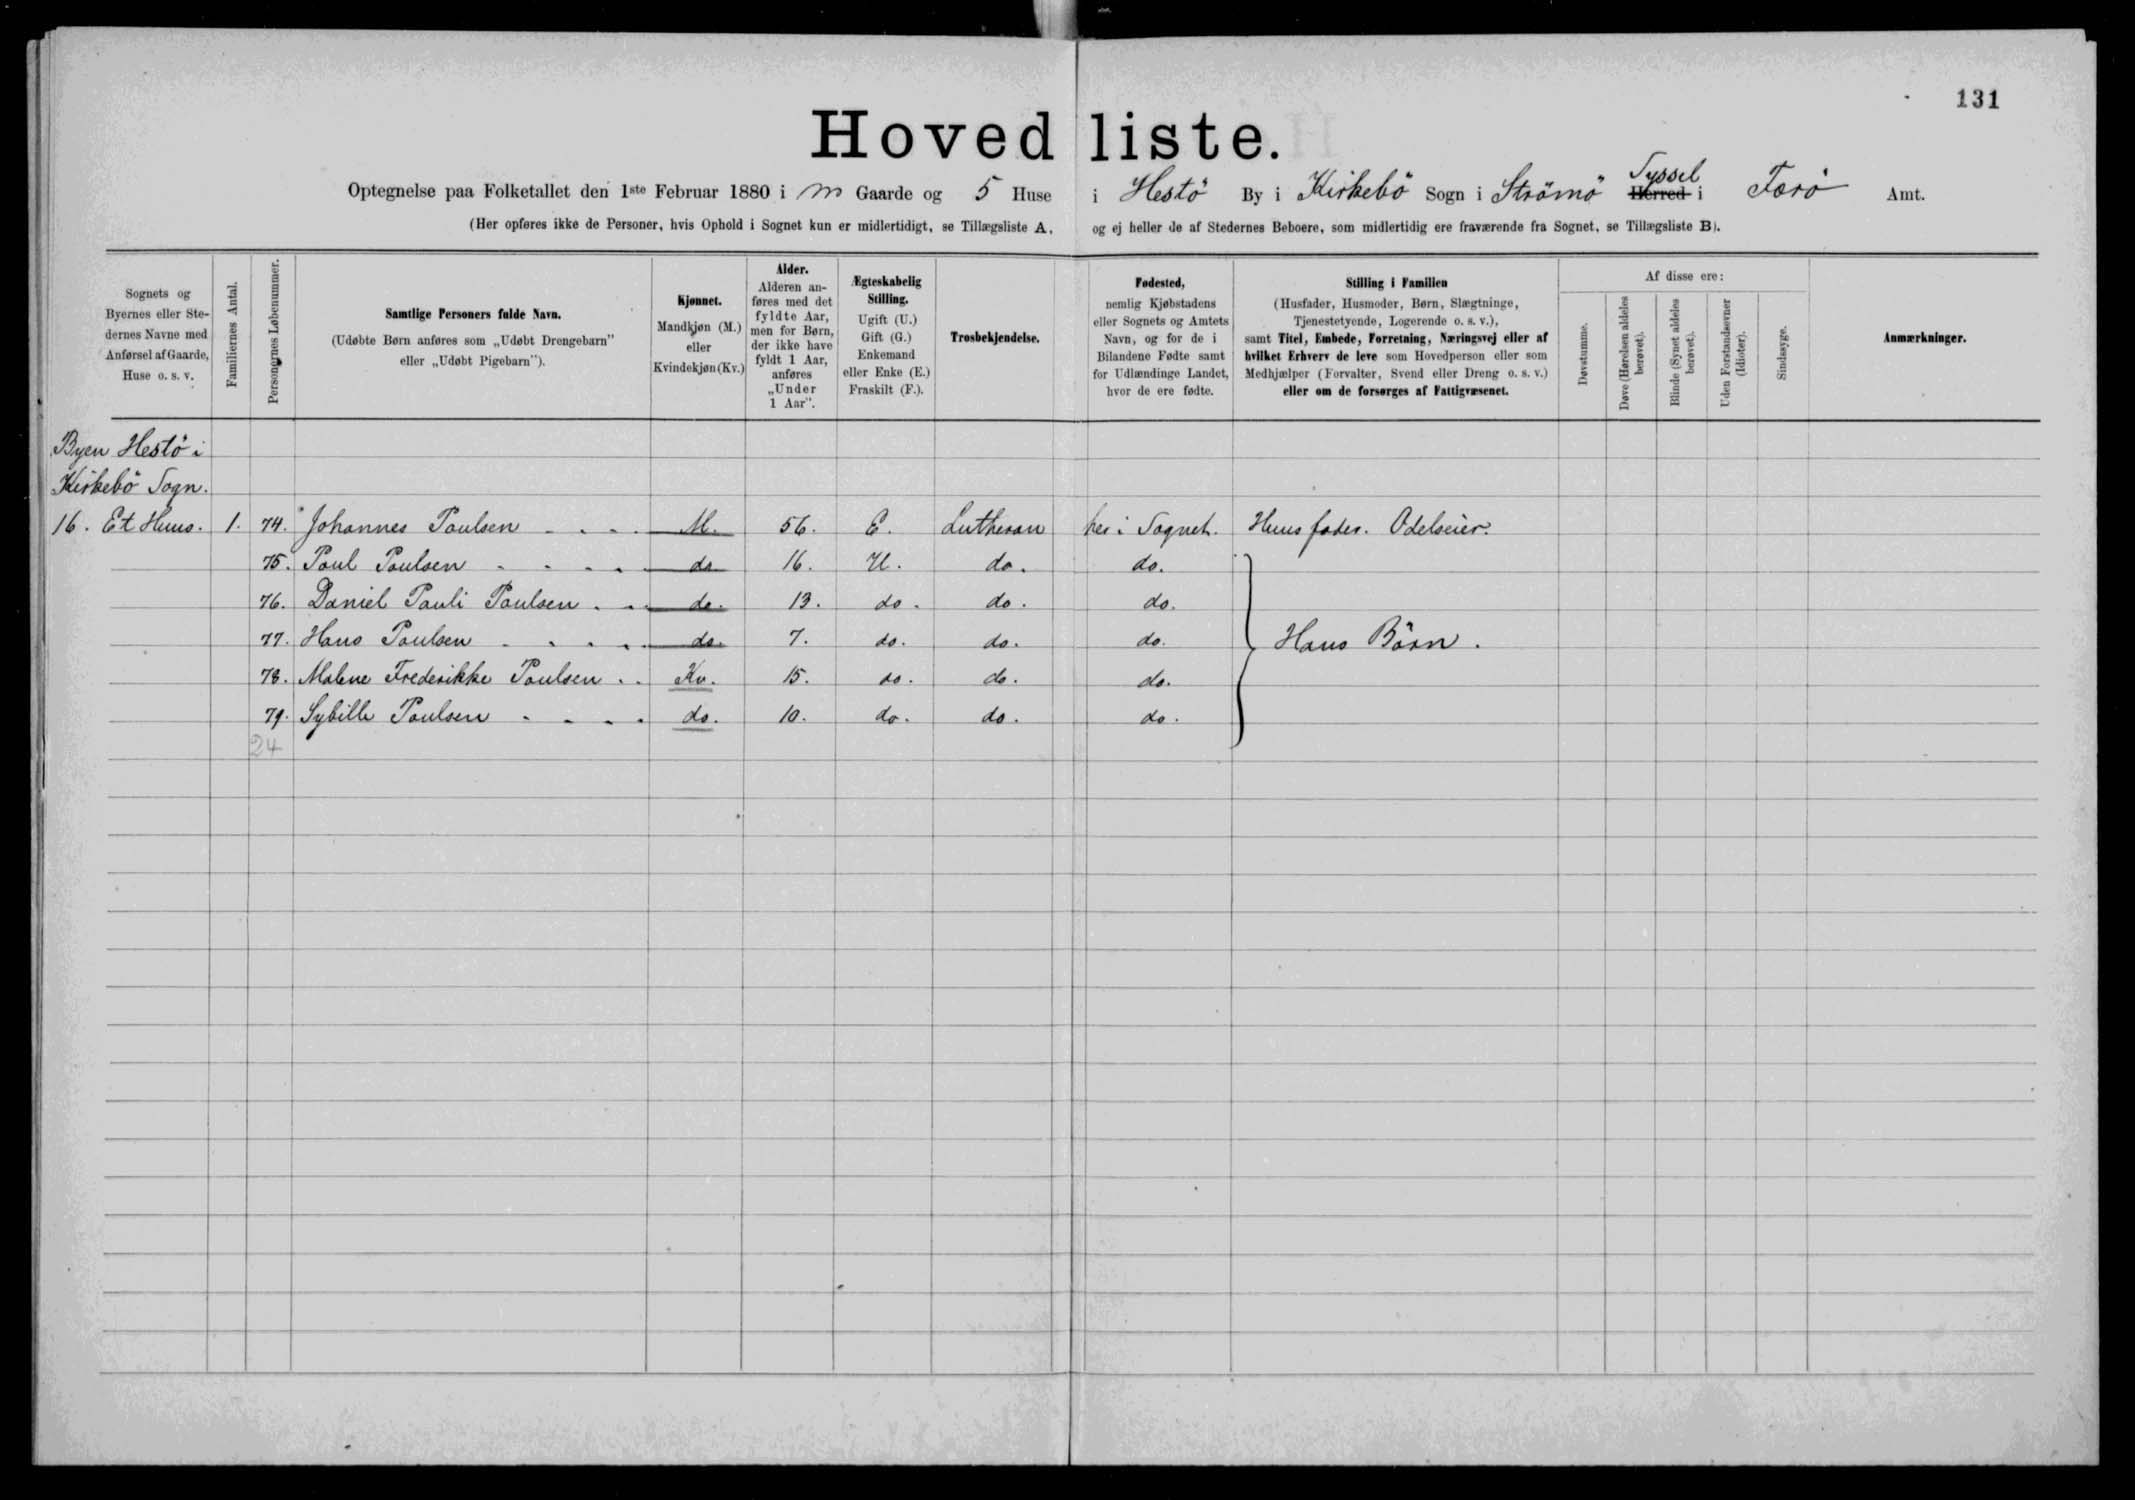 131
Hovedliste.
Optegnelse paa Folketallet den 1ste Februar 1880 i m Gaarde og 5 Huse i Hestö By i Kirkebö Sogn i Strömö Herred Syssel i Færö Amt.
(Her opføres ikke de Personer, hvis Ophold i Sognet kun er midlertidigt, se Tillægsliste A, og ej heller de af Stedernes Beboere, som midlertidig ere fraværende fra Sognet, se Tillægsliste B).
Sognets og
Byernes eller Ste-
dernes Navne med
Anførsel af Gaarde,
Huse o. s. v.
Familiernes Antal.
Personernes Løbenummer.
Samtlige Personers fulde Navn.
(Udøbte Børn anføres som „Udøbt Drengebarn”
eller „Udøbt Pigebarn”).
Kjønnet.
Mandkjøn (M.)
eller
Kvindekjøn (Kv.)
Alder.
Alderen an-
føres med det
fyldte Aar,
men for Børn,
der ikke have
fyldt 1 Aar,
anføres
„Under
1 Aar”.
Ægteskabelig
Stilling.
Ugift (U.)
Gift (G.)
Enkemand
eller Enke (E.)
Fraskilt (F.).
Trosbekjendelse.
Fødested,
nemlig Kjøbstadens
eller Sognets og Amtets
Navn, og for de i
Bilandene Fødte samt
for Udlændinge Landet,
hvor de ere fødte.
Stilling i Familien
(Husfader, Husmoder, Børn, Slægtninge,
Tjenestetyende, Logerende o. s. v.),
samt Titel, Embede, Forretning, Næringsvej eller af
hvilket Erhverv de leve som Hovedperson eller som
Medhjælper (Forvalter, Svend eller Dreng o. s. v.)
eller om de forsørges af Fattigvæsenet.
Af disse ere:
Døvstumme.
Døve (Hørelsen aldeles
berøvet).
Blinde (Synet aldeles
berøvet).
Uden Forstandsevner
(Idioter).
Sindssyge.
Anmærkninger.
Byen Hestö i
Kirkebö Sogn.
16. Et Huus. 1. 74. Johannes Poulsen - - - M. 56. E. Lutheran her i Sognet. Huusfader. Odelseier.
75. Poul Poulsen - - - - do 16. U. do. do.
76. Daniel Pauli Poulsen . - do. 13. do. do. do.
77. Hans Poulsen - - - - do. 7. do. do. do. Hans Börn.
78. Malene Frederikke Poulsen . . Kv. 15. do. do. do.
79. Sybille Poulsen - - - - do. 10. do. do. do.
24